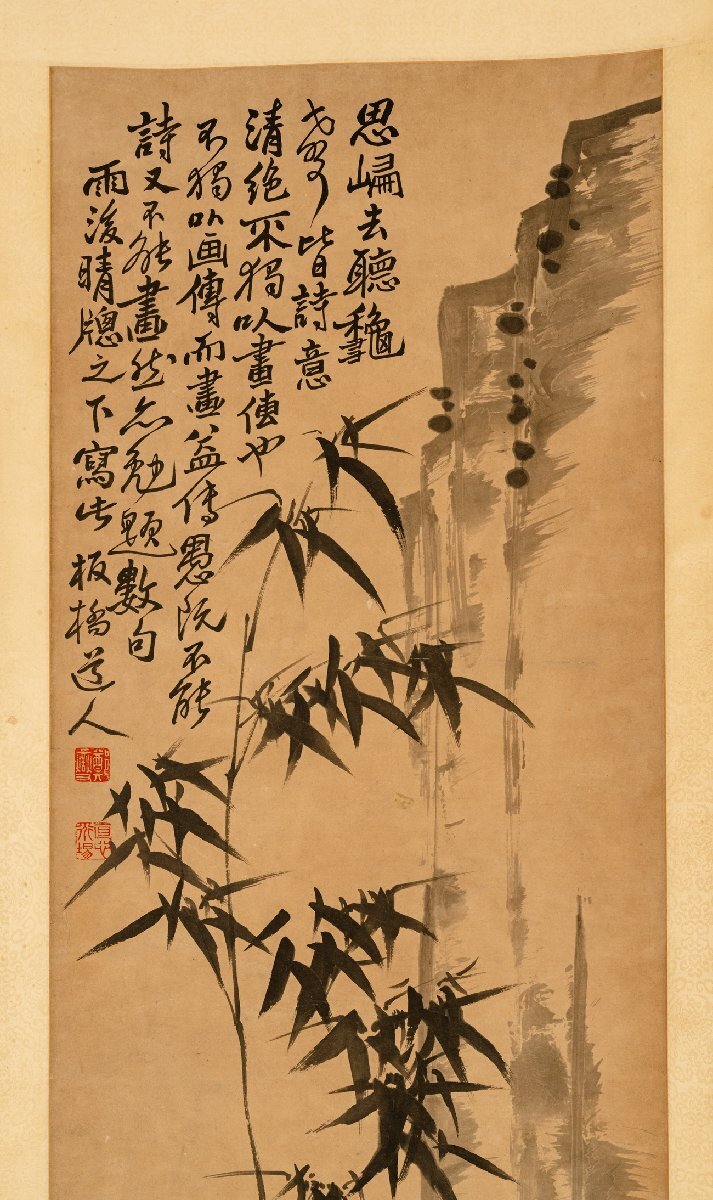 思去聽龝
皆詩意
清绝不獨以畫傳也
不獨以画傳而畫益傳愚既不能
詩又不能畫然亦勉題數句
雨後晴牕之下寫此 板橋道人
直心道場